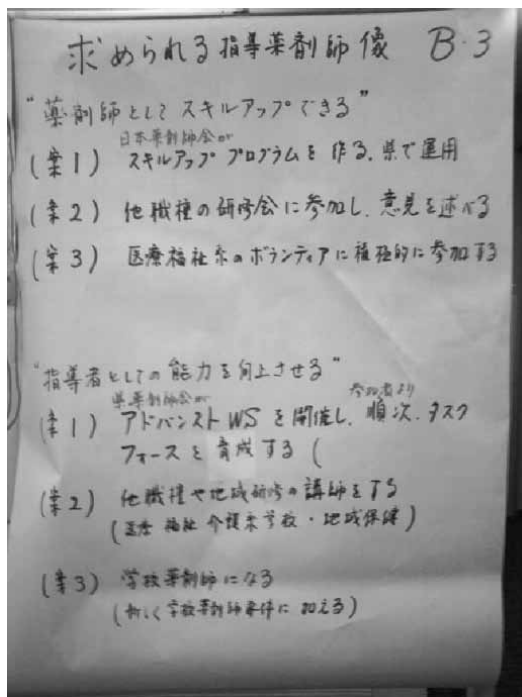 求められる指導薬剤師像 B・3
"薬剤師としてスキルアップできる"
日本薬剤師会が
(案1) スキルアッププログラムを作る、県で運用
(案2) 他職種の研修会に参加し、意見を述べる
(案3) 医療福祉系のボランティアに積極的に参加する
"指導者としての能力を向上させる"
県薬剤師会が 参加者より
(案1) アドバンストWSを開催し、順次、タスク
フォースを育成する (
(案2) 他職種や地域研修の講師をする
(医療 福祉 介護系学校・地域保健)
(案3) 学校薬剤師になる
(新しく学校薬剤師要件に加える)